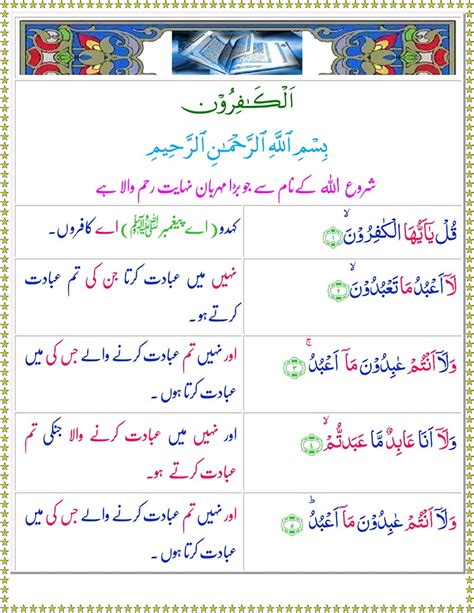 اَلْكٰفِرُوْن
بِسْمِ اللَّهِ الرَّحْمَـٰنِ الرَّحِيمِ
شروع اللہ کے نام سے جو بڑا مہربان نہایت رحم والا ہے
قُلْ يٰٓاَيُّهَا الْكٰفِرُوْنَ ۙ﴿۱﴾
کہدو (اے پیغمبر ﷺ) اے کافروں۔
لَاۤ اَعْبُدُ مَا تَعْبُدُوْنَ ۙ﴿۲﴾
نہیں میں عبادت کرتا جن کی تم عبادت
کرتے ہو۔
وَلَاۤ اَنْتُمْ عٰبِدُوْنَ مَاۤ اَعْبُدُ ۚ﴿۳﴾
اور نہیں تم عبادت کرنے والے جس کی میں
عبادت کرتا ہوں۔
وَلَاۤ اَنَا عَابِدٌ مَّا عَبَدْتُّمْ ۙ﴿۴﴾
اور نہیں میں عبادت کرنے والا جنکی تم
عبادت کرتے ہو۔
وَلَاۤ اَنْتُمْ عٰبِدُوْنَ مَاۤ اَعْبُدُ ؕ﴿۵﴾
اور نہیں تم عبادت کرنے والے جس کی میں
عبادت کرتا ہوں۔